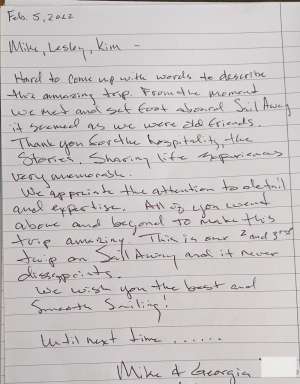 Feb. 5, 2022
Mike, Lesley, Kim -
Hard to come up with words to describe
this amazing trip. From the moment
we met and set foot aboard Sail Away
it seemed as we were old friends.
Thank you for the hospitality, the
Stories. Sharing life experiences
very memorable.
We appriciate the attention to detail
and expertise. All of you went
above and beyond to make this
trip amazing. This is our 2nd and 3rd
trip on Sail Away and it never
dissappoints.
We wish you the best and
Smooth Smiling!
Until next time ......
Mike & Georgia